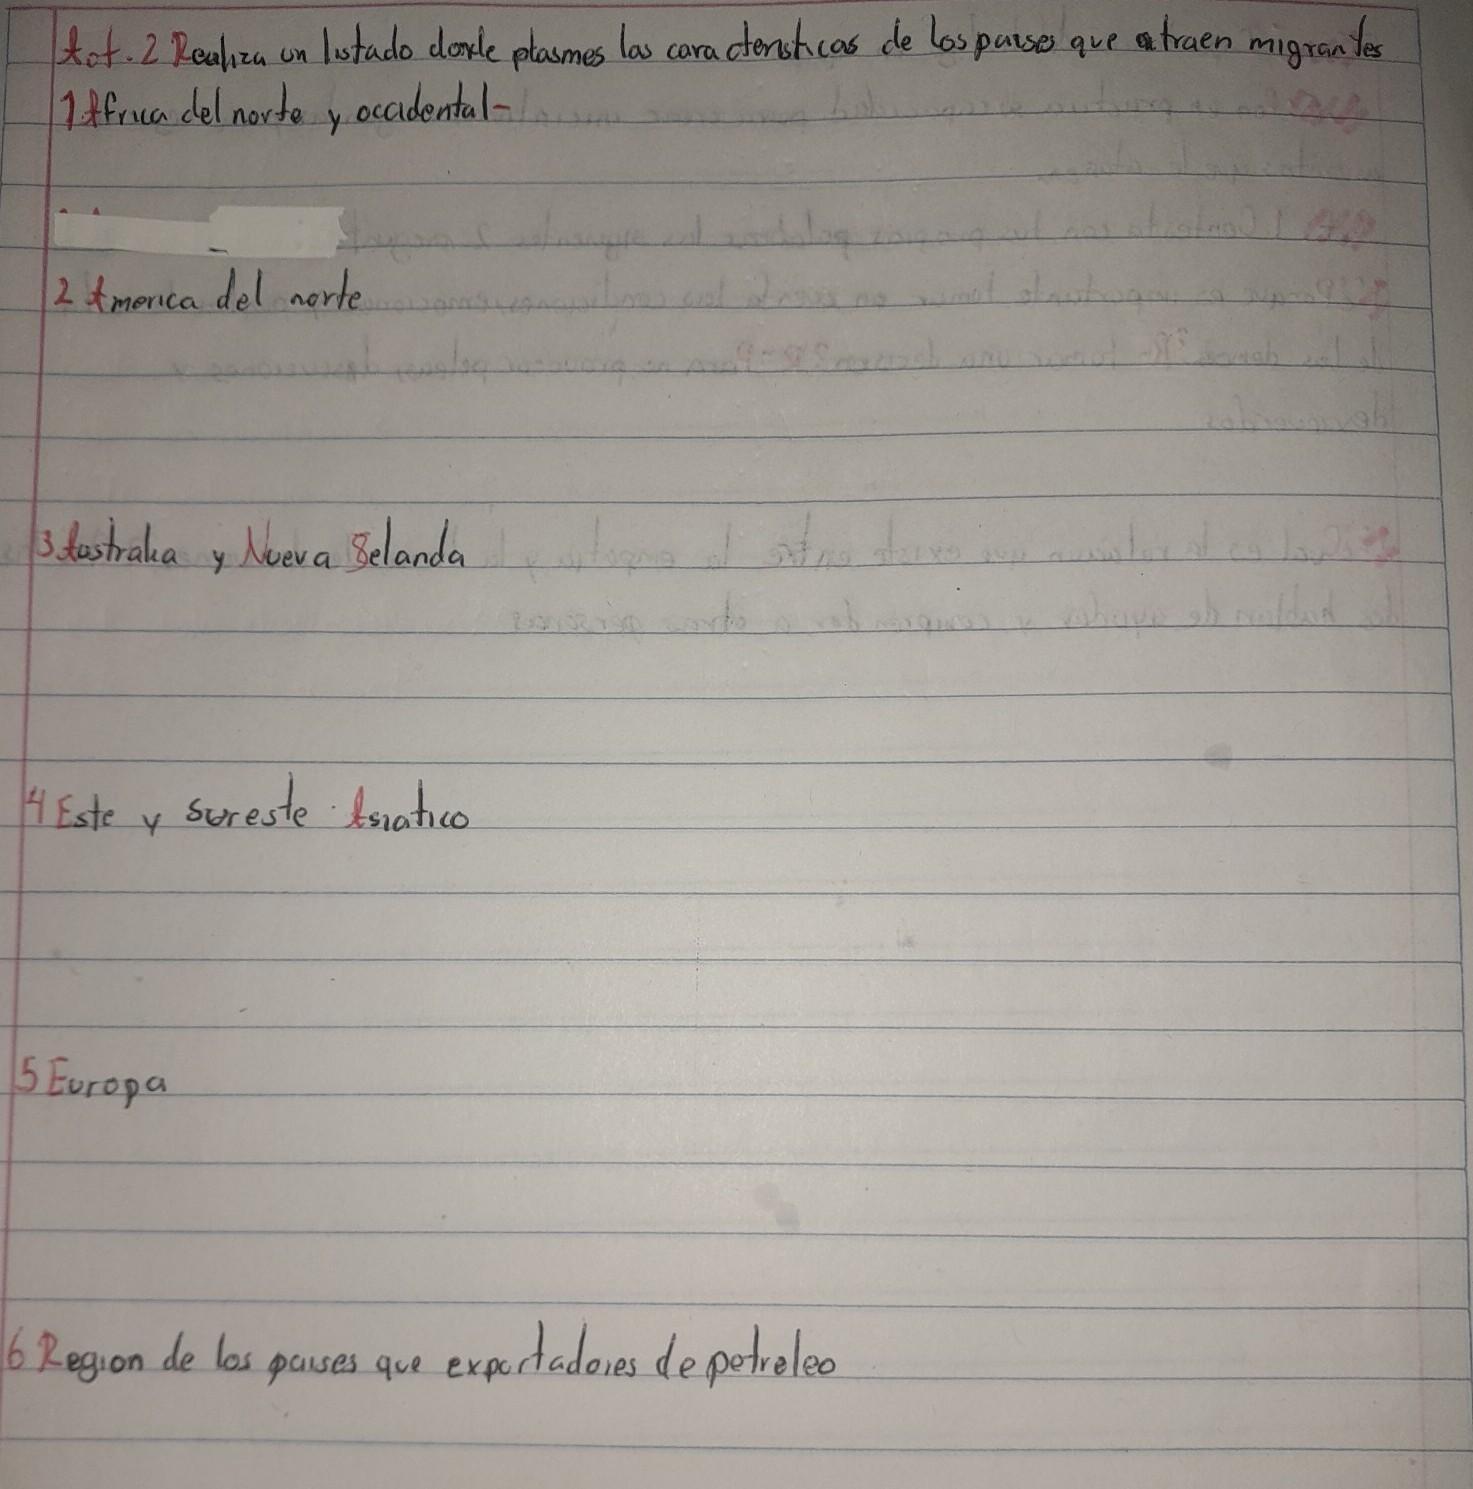 Act. 2 Realiza un listado donde plasmes las caracteristicas de los paises que atraen migrantes
1 Africa del norte y occidental-
2 America del norte
3 Australia y Nueva Zelanda
4 Este y sureste Asiatico
5 Europa
6 Region de los paises que exportadores de petroleo